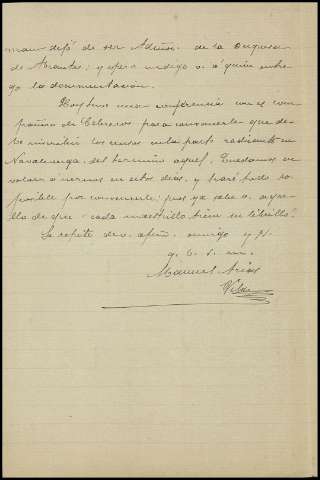 man dejó de ser Admor. de la Duquesa
de Abrantes; y espero me diga a quien entre-
go la documentación.
Hoy tuve una conferencia con el com-
pañero de Cebreros para convencerle que de-
be inscribir las cosas en la parte radicante en
Navaluenga, del término aquel. Quedamos en
volver a vernos en estos días, y haré todo lo
posible por convencerle; pues ya sabe v. aque-
llo de que "cada maestrillo tiene su librillo".
Se repite de v. afmo. amigo y s.
q. b. s. m.
Manuel Arias
Vila